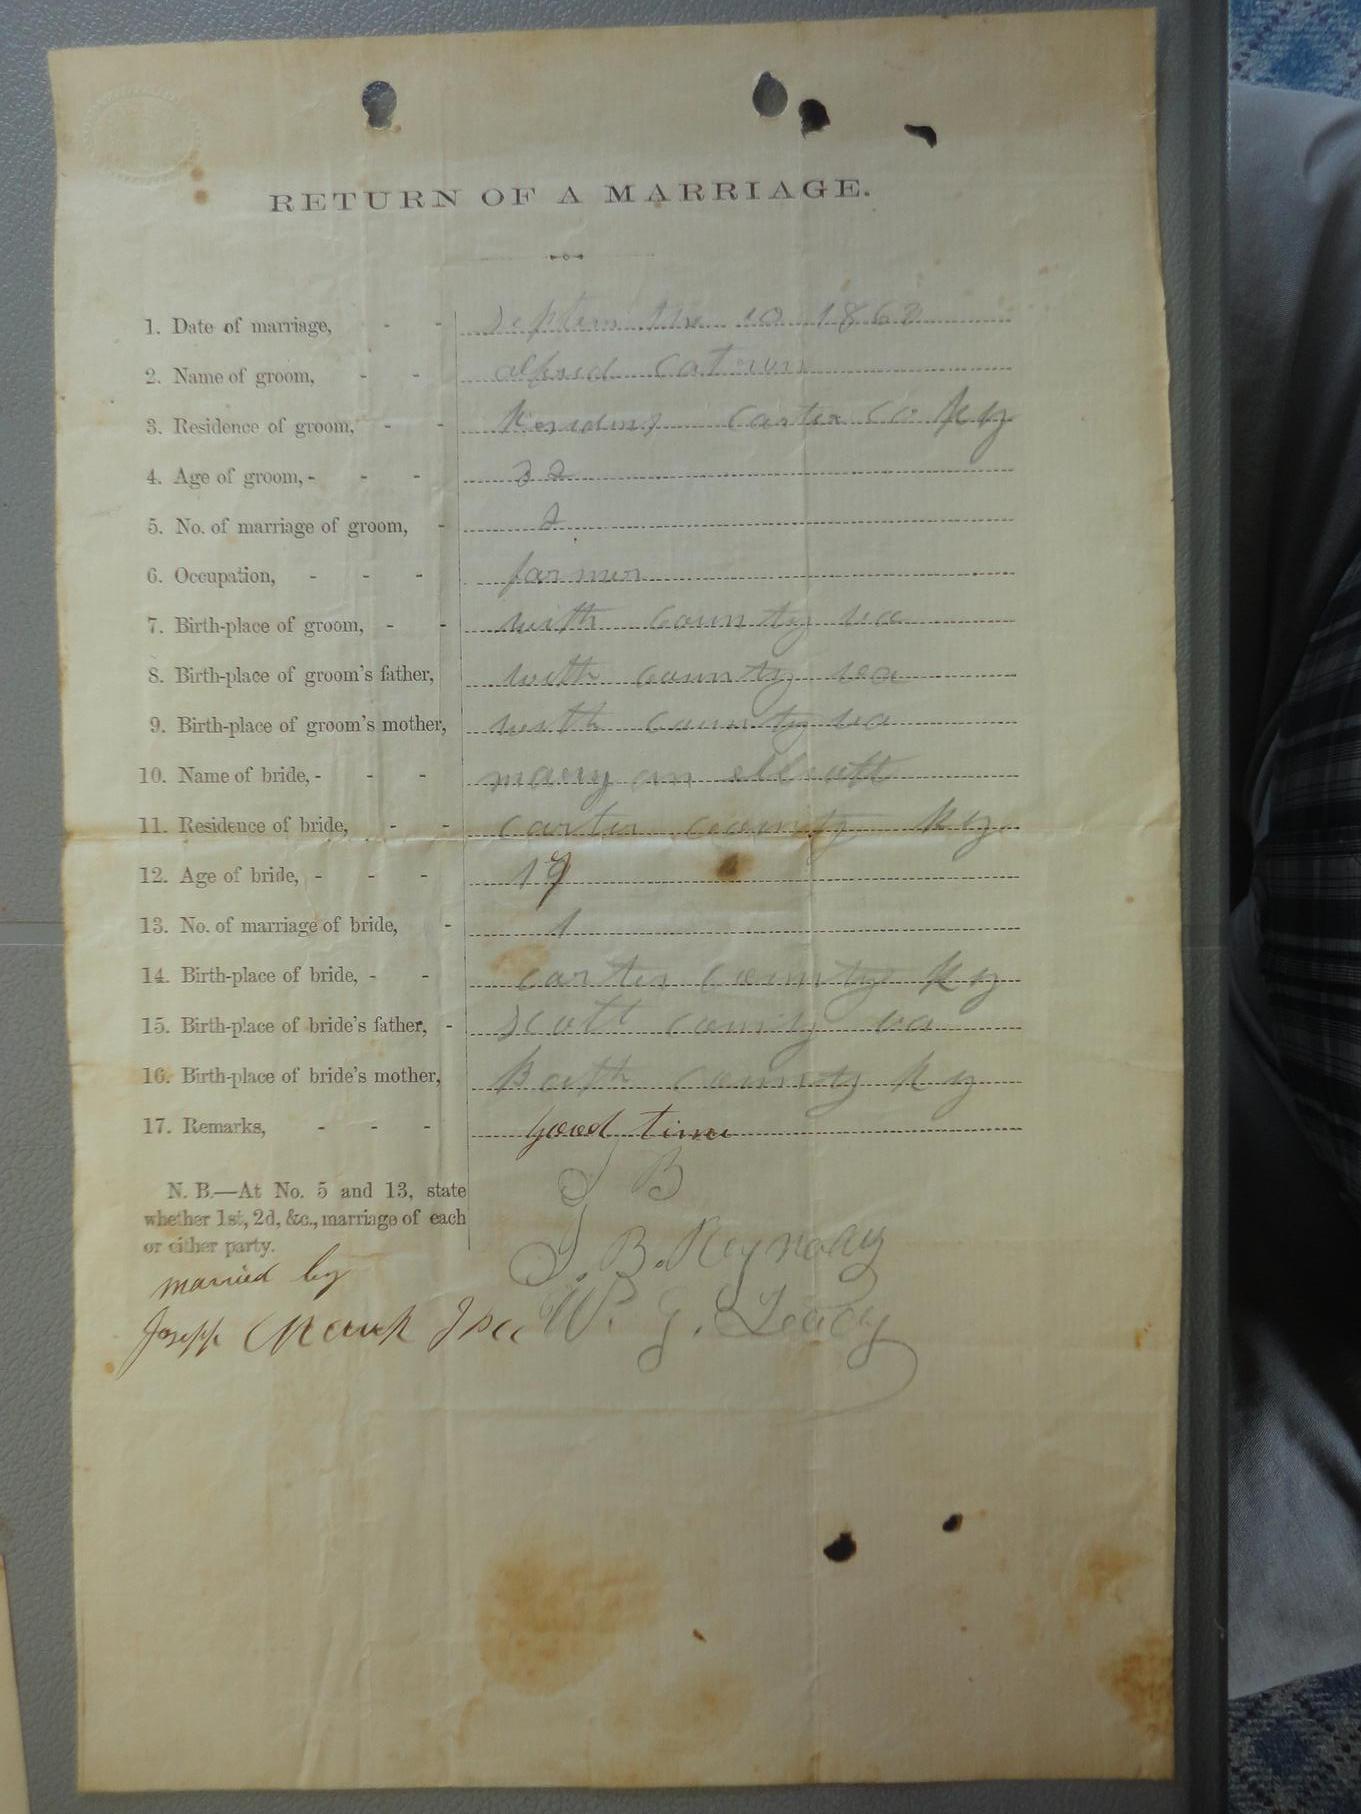 RETURN OF A MARRIAGE.
1. Date of marriage, - - Septem the 10 1868
2. Name of groom, - - alfred Catrun
3. Residence of groom, - - Carter Co Ky
4. Age of groom, - - - 32
5. No. of marriage of groom, - 2
6. Occupation, - - - farmer
7. Birth-place of groom, - - with county va
8. Birth-place of groom's father, with county va
9. Birth-place of groom's mother, with county va
10. Name of bride, - - - mary an
11. Residence of bride, - - carter county Ky
12. Age of bride, - - - 19
13. No. of marriage of bride, - 1
14. Birth-place of bride, - - carter county Ky
15. Birth-place of bride's father, - Scott county va
16. Birth-place of bride's mother, Bath County Ky
17. Remarks, - - - good time
N. B.—At No. 5 and 13, state
whether 1st, 2d, &c., marriage of each
or either party.
J B
J. B. Reynolds
married by
Joseph
W. G.